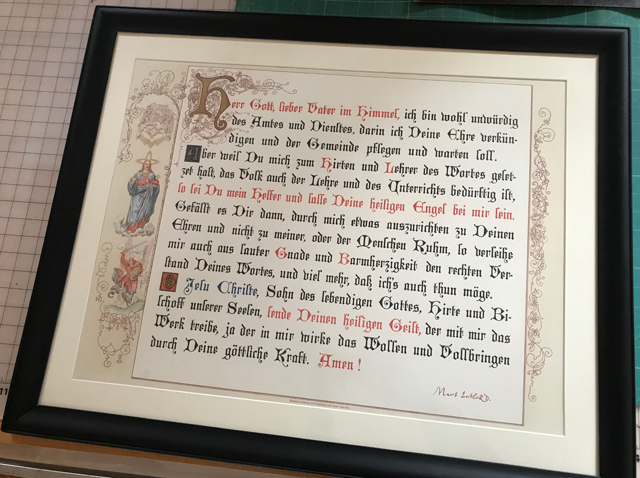 Herr Gott, lieber Vater im Himmel, ich bin wohl unwürdig
des Amtes und Dienstes, darin ich Deine Ehre verkün-
digen und der Gemeinde pflegen und warten soll.
Aber weil Du mich zum Hirten und Lehrer des Wortes geset-
zet hast, das Volk auch der Lehre und des Unterrichts bedürftig ist,
so sei Du mein Helfer und lasse Deine heiligen Engel bei mir sein.
Gefällt es Dir dann, durch mich etwas auszurichten zu Deinen
Ehren und nicht zu meiner, oder der Menschen Ruhm, so verleihe
mir auch aus lauter Gnade und Barmherzigkeit den rechten Ver-
stand Deines Wortes, und viel mehr, daß ich's auch thun möge.
O Jesu Christe, Sohn des lebendigen Gottes, Hirte und Bi-
schoff unserer Seelen, sende Deinen heiligen Geist, der mit mir das
Werk treibe, ja der in mir wirke das Wollen und Vollbringen
durch Deine göttliche Kraft. Amen!